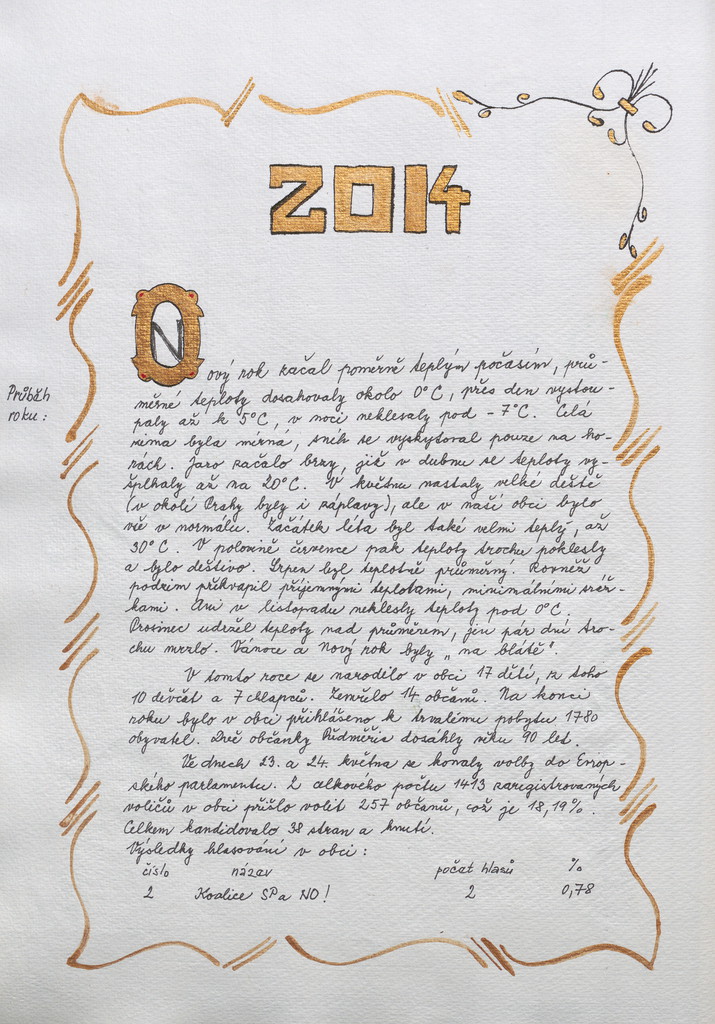 2014
Nový rok začal poměrně teplým počasím, prů-
Průběh
roku:
měrné teploty dosahovaly okolo 0°C, přes den vystou-
paly až k 5°C, v noci neklesaly pod -7°C. Celá
zima byla mírná, sníh se vyskytoval pouze na ho-
rách. Jaro začalo brzy, již v dubnu se teploty vy-
šplhaly až na 20°C. V květnu nastaly velké deště
(v okolí Prahy byly i záplavy), ale v naší obci bylo
vše v normálu. Začátek léta byl také velmi teplý, až
30°C. V polovině července pak teploty trochu poklesly
a bylo deštivo. Srpen byl teplotně průměrný. Rovněž
podzim překvapil příjemnými teplotami, minimálními sráž-
kami. Ani v listopadu neklesly teploty pod 0°C.
Prosinec udržel teploty nad průměrem, jen pár dní tro-
chu mrzlo. Vánoce a Nový rok byly „na blátě".
V tomto roce se narodilo v obci 17 dětí, z toho
10 děvčat a 7 chlapců. Zemřelo 14 občanů. Na konci
roku bylo v obci přihlášeno k trvalému pobytu 1780
obyvatel. Dvě občanky Ždměřic dosáhly věku 90 let.
Ve dnech 23. a 24. května se konaly volby do Evrop-
ského parlamentu. Z celkového počtu 1413 zaregistrovaných
voličů v obci přišlo volit 257 občanů, což je 18,19%.
Celkem kandidovalo 38 stran a hnutí.
Výsledky hlasování v obci:
číslo název počet hlasů %
2 Koalice SP a NO! 2 0,78